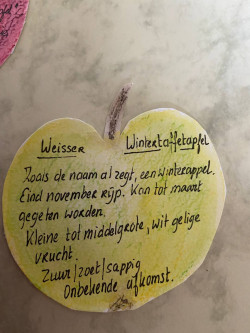 Weisser Wintertaffetapfel
Zoals de naam al zegt, een winterappel.
Eind november rijp. Kan tot maart
gegeten worden.
Kleine tot middelgrote, wit gelige
vrucht.
Zuur/zoet/sappig
Onbekende afkomst.